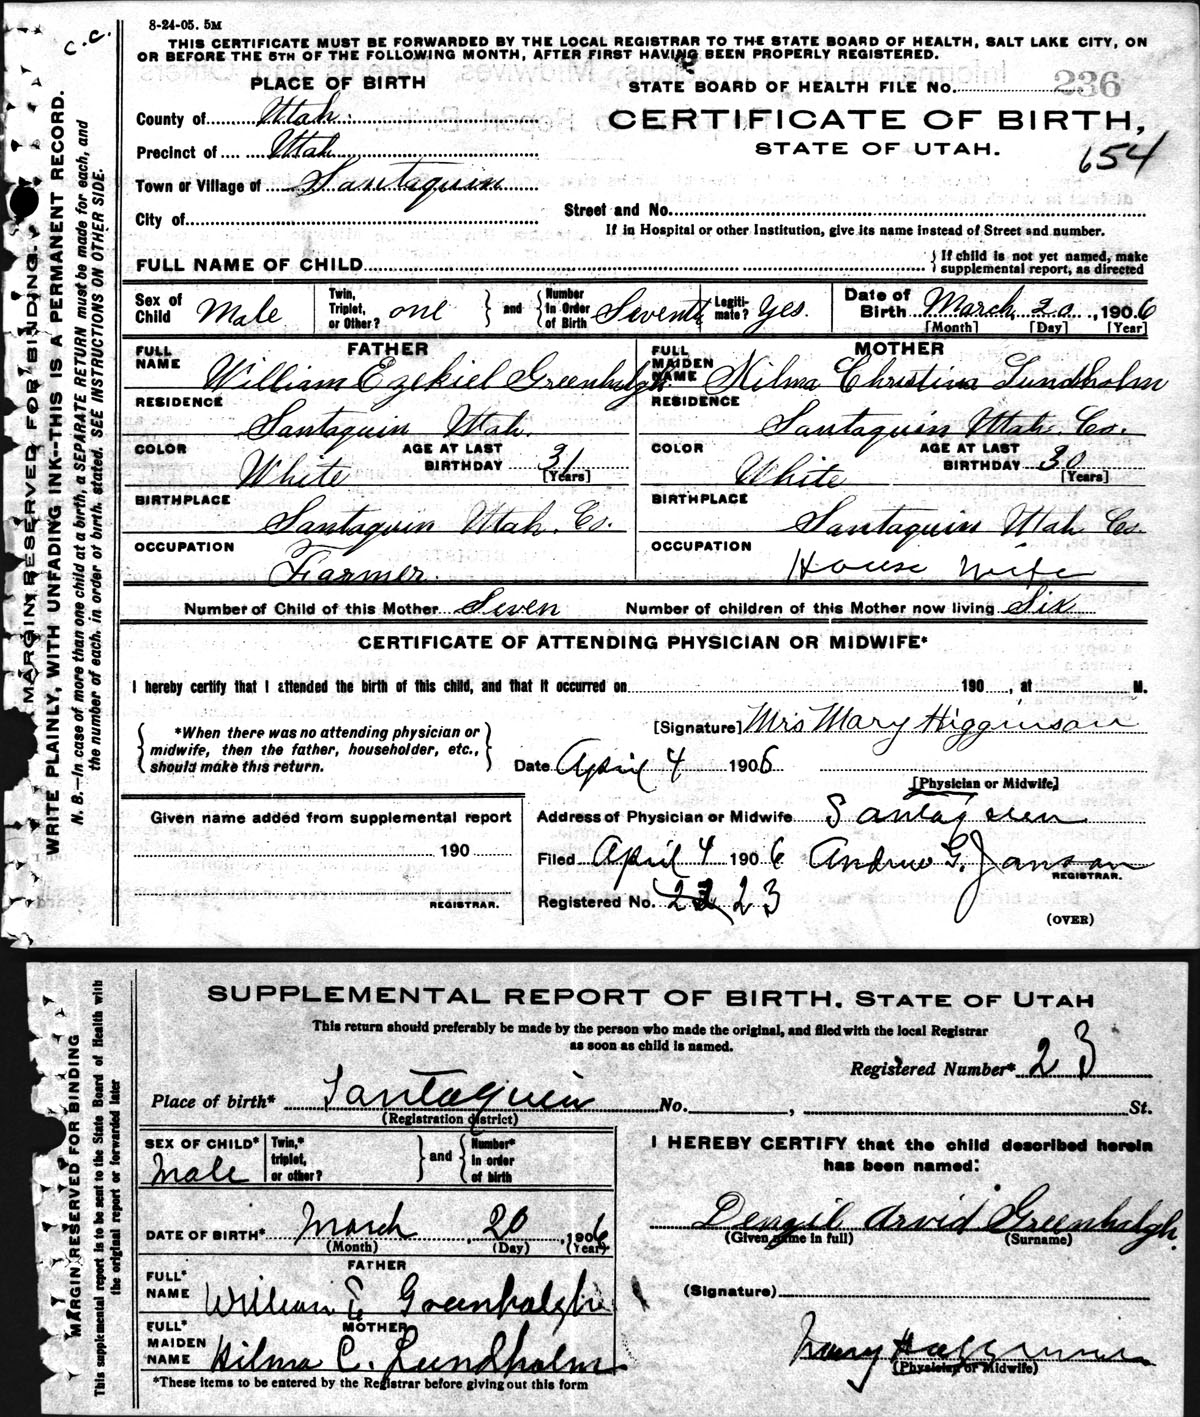 8-24-05. 5M
C.C.
THIS CERTIFICATE MUST BE FORWARDED BY THE LOCAL REGISTRAR TO THE STATE BOARD OF HEALTH, SALT LAKE CITY, ON
OR BEFORE THE 5TH OF THE FOLLOWING MONTH, AFTER FIRST HAVING BEEN PROPERLY REGISTERED.
PLACE OF BIRTH
STATE BOARD OF HEALTH FILE NO. 236
County of Utah
CERTIFICATE OF BIRTH,
Precinct of Utah
STATE OF UTAH.
654
Town or Village of Santaquin
City of
Street and No.
If in Hospital or other Institution, give its name instead of Street and number.
FULL NAME OF CHILD
If child is not yet named, make
supplemental report, as directed
Sex of Child Male Twin, Triplet, or Other? one and Number In Order of Birth Seventh Legitimate? Yes. Date of Birth March 20, 1906
[Month] [Day] [Year]
FATHER MOTHER
FULL NAME William Ezekiel Greenhalgh FULL MAIDEN NAME Hilma Christina Lundholm
RESIDENCE Santaquin Utah. RESIDENCE Santaquin Utah. Co.
COLOR White AGE AT LAST BIRTHDAY 31 [Years] COLOR White AGE AT LAST BIRTHDAY 30 [Years]
BIRTHPLACE Santaquin Utah. Co. BIRTHPLACE Santaquin Utah Co.
OCCUPATION Farmer. OCCUPATION House wife
Number of Child of this Mother Seven Number of children of this Mother now living Six
CERTIFICATE OF ATTENDING PHYSICIAN OR MIDWIFE*
I hereby certify that I attended the birth of this child, and that it occurred on 190 , at M.
*When there was no attending physician or
midwife, then the father, householder, etc.,
should make this return.
[Signature] Mrs Mary Higginson
Date April 4 1906
[Physician or Midwife]
Given name added from supplemental report
190
REGISTRAR.
Address of Physician or Midwife Santaquin
Filed April 4 1906 Andrew G. Janson
REGISTRAR.
Registered No. 23
(OVER)
MARGIN RESERVED FOR BINDING.
WRITE PLAINLY, WITH UNFADING INK--THIS IS A PERMANENT RECORD.
N. B.—In case of more than one child at a birth, a SEPARATE RETURN must be made for each, and
the number of each, in order of birth, stated. SEE INSTRUCTIONS ON OTHER SIDE.
SUPPLEMENTAL REPORT OF BIRTH, STATE OF UTAH
This return should preferably be made by the person who made the original, and filed with the local Registrar
as soon as child is named.
Registered Number* 23
Place of birth* Santaquin No. , St.
(Registration district)
SEX OF CHILD* Male Twin,* triplet, or other? and Number* in order of birth
I HEREBY CERTIFY that the child described herein
has been named:
DATE OF BIRTH* March 20, 1906
(Month) (Day) (Year)
Denzil Arvid Greenhalgh
(Given name in full) (Surname)
FATHER
FULL* NAME William E Greenhalgh
(Signature)
MOTHER
FULL* MAIDEN NAME Hilma C. Lundholm
Mary Higginson
(Physician or Midwife)
*These items to be entered by the Registrar before giving out this form
MARGIN RESERVED FOR BINDING
This supplemental report is to be sent to the State Board of Health with
the original report or forwarded later